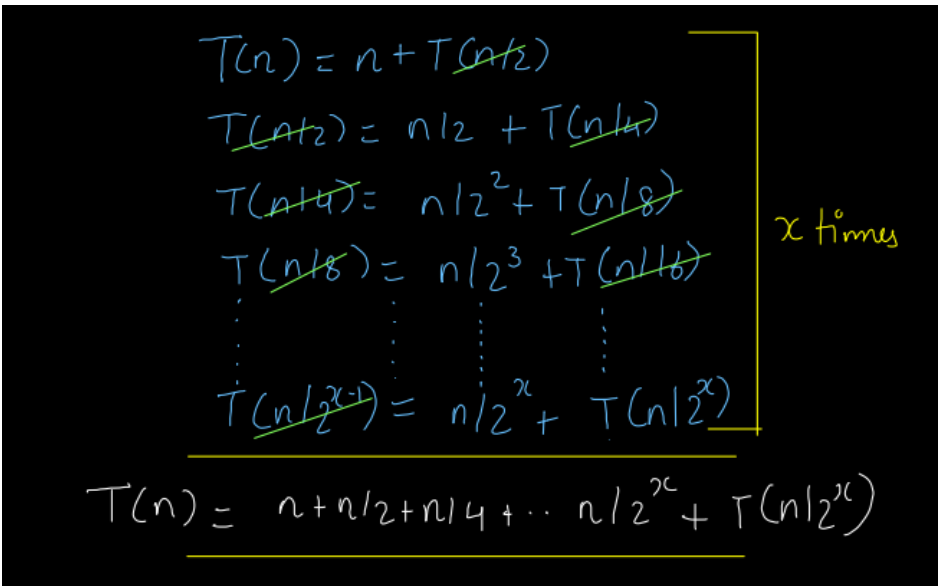 T(n) = n + T(n/2)
T(n/2) = n/2 + T(n/4)
T(n/4) = n/2² + T(n/8)
x times
T(n/8) = n/2³ + T(n/16)
T(n/2ˣ⁻¹) = n/2ˣ + T(n/2ˣ)
T(n) = n+n/2+n/4+ .. n/2ˣ + T(n/2ˣ)